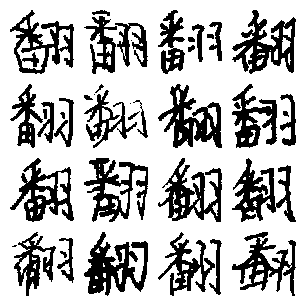 翻翻翻翻
翻翻翻翻
翻翻翻翻
翻翻翻翻